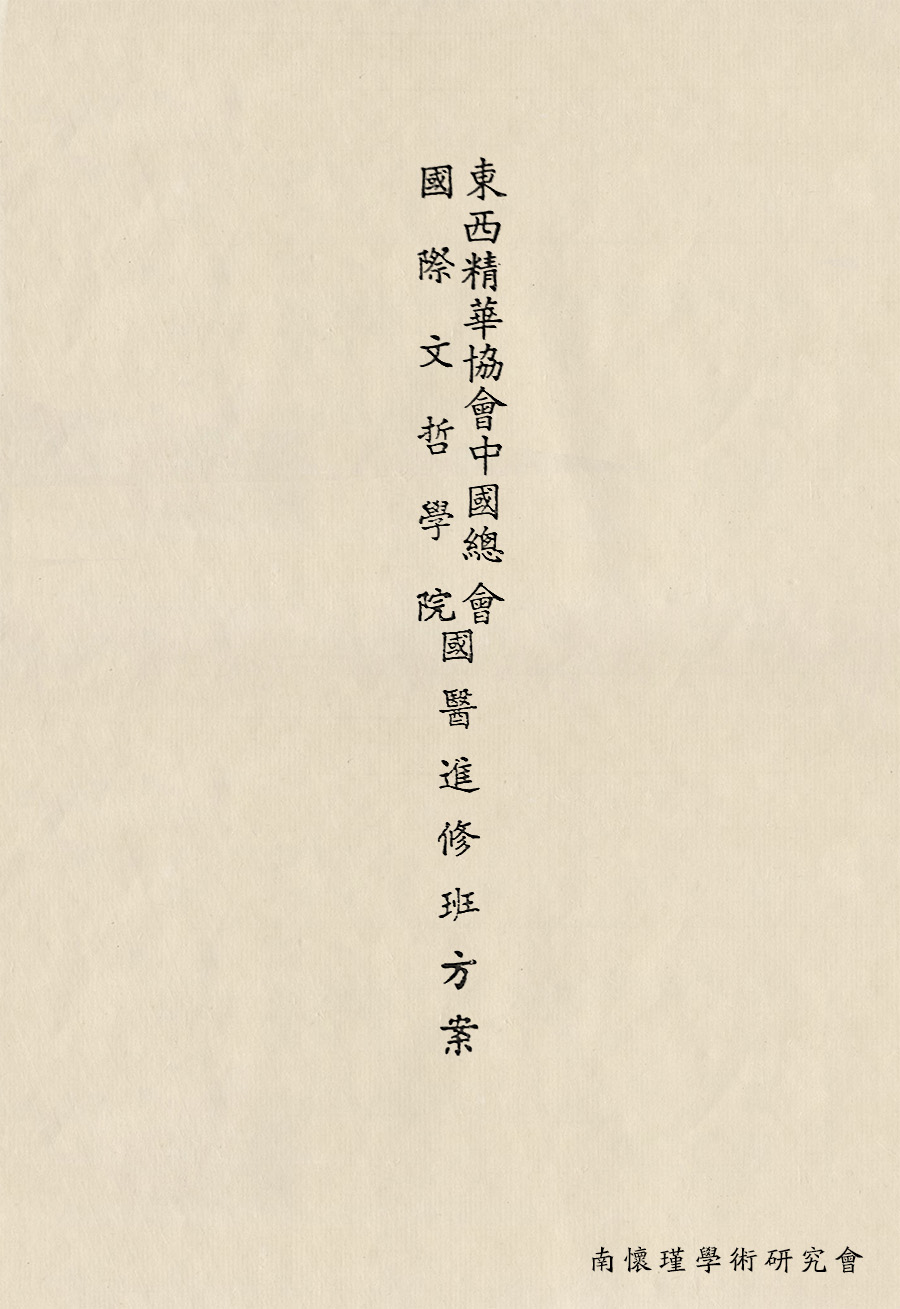 東西精華協會中國總會
國際文哲學院
國醫進修班方案
南懷瑾學術研究會